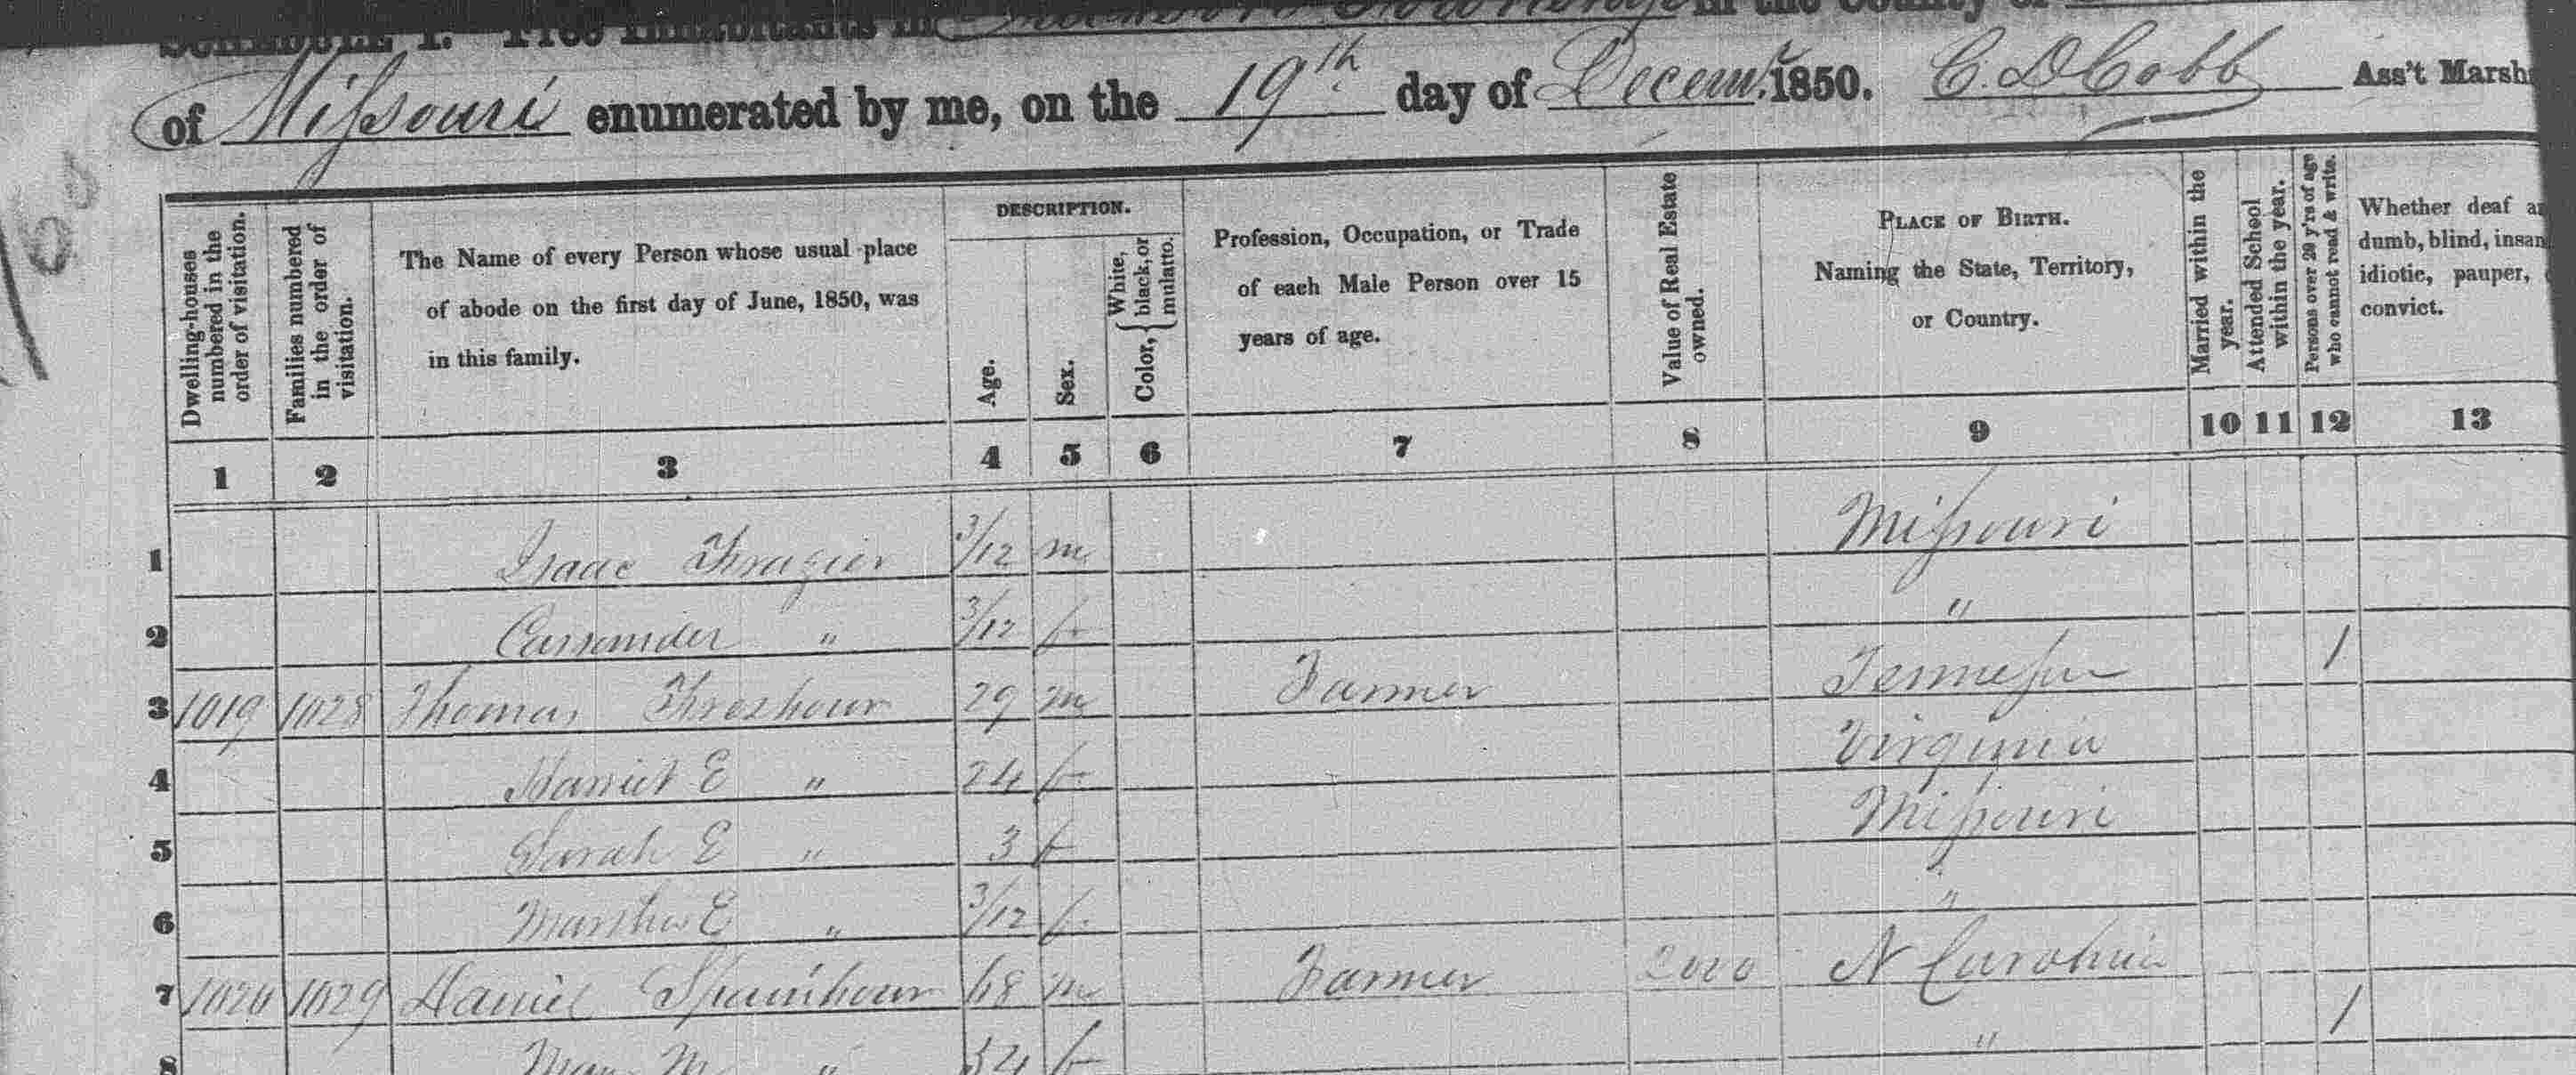 SCHEDULE I. Free Inhabitants in in the County of
of Missouri enumerated by me, on the 19th day of Decemr. 1850. C. D. Cobb Ass't Marsh
Dwelling-houses numbered in the order of visitation.
Families numbered in the order of visitation.
The Name of every Person whose usual place of abode on the first day of June, 1850, was in this family.
DESCRIPTION.
Age.
Sex.
Color, { White, black, or mulatto.
Profession, Occupation, or Trade of each Male Person over 15 years of age.
Value of Real Estate owned.
PLACE OF BIRTH. Naming the State, Territory, or Country.
Married within the year.
Attended School within the year.
Persons over 20 y'rs of age who cannot read & write.
Whether deaf dumb, blind, insan idiotic, pauper, convict.
1 2 3 4 5 6 7 8 9 10 11 12 13
1 Isaac Frazier 3/12 m Missouri
2 Cassander " 3/12 f "
3 1019 1028 Thomas Froshour 29 m Farmer Tennessee 1
4 Harriet E " 24 f Virginia
5 Sarah E " 3 f Missouri
6 Martha E " 3/12 f "
7 1020 1029 Daniel Spainhour 68 m Farmer 2000 N Carolina
8 Mary M " 54 f " 1